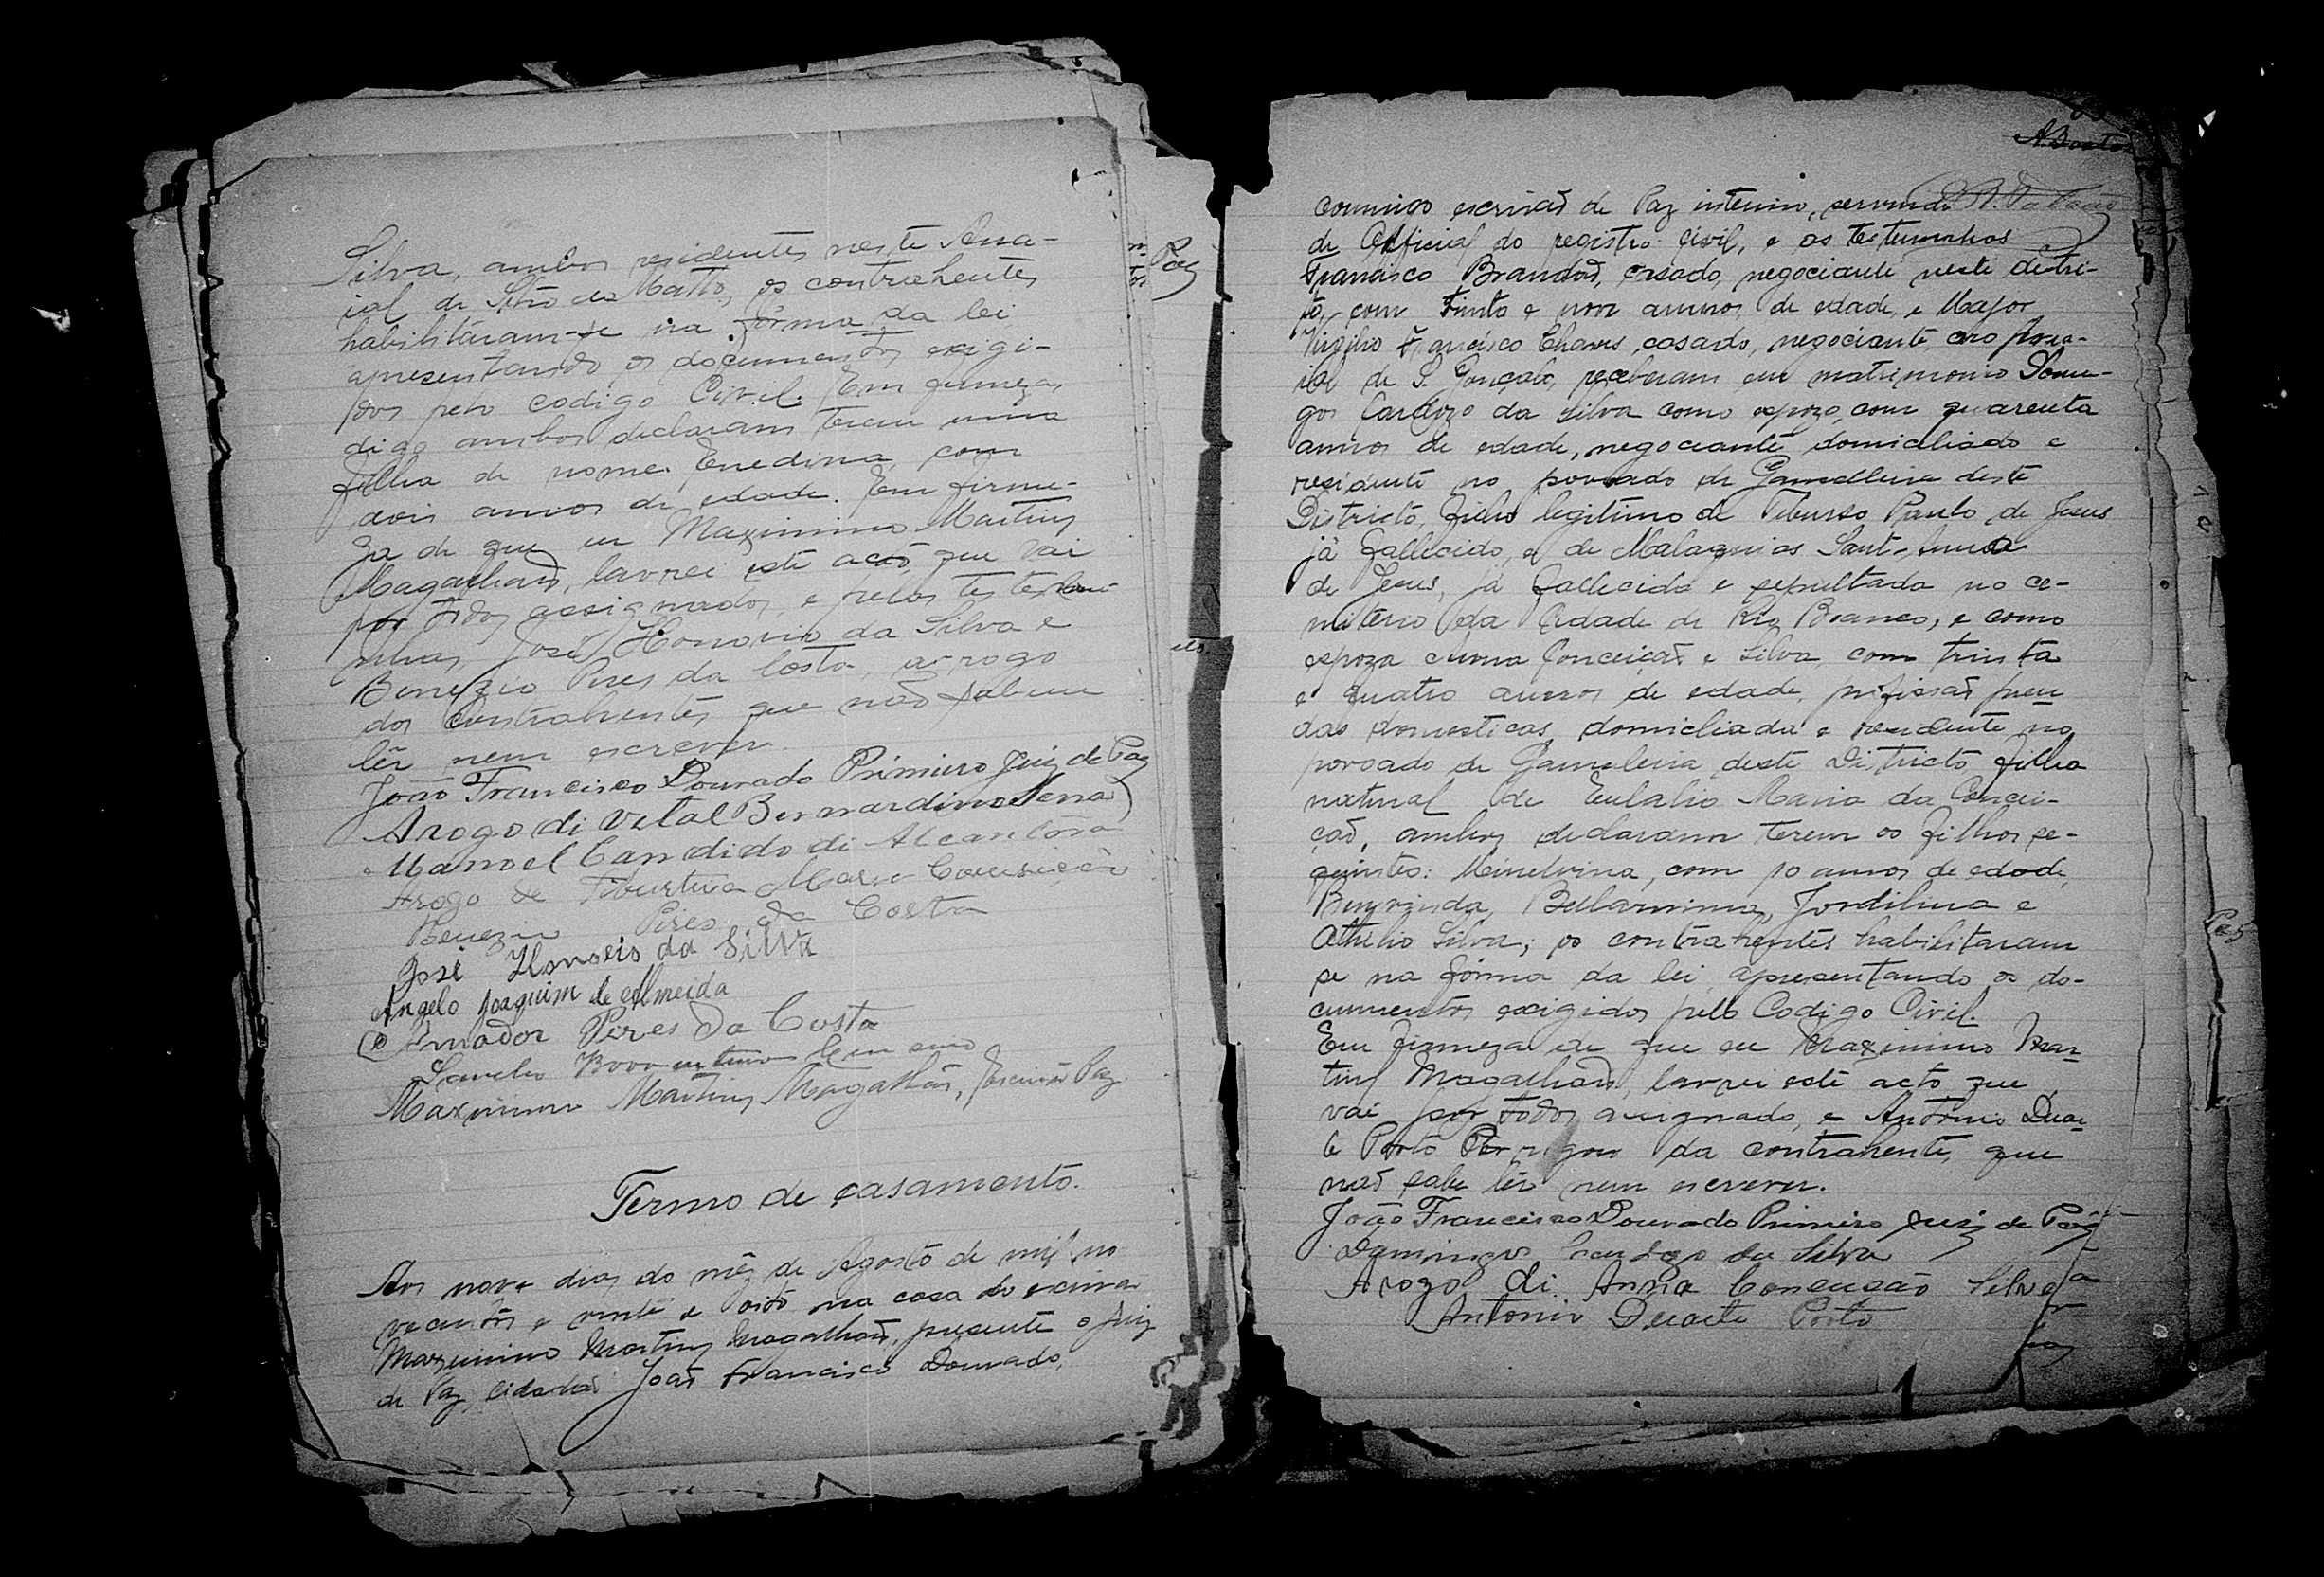 Silva, ambos residentes neste Arra-
ial de Sitio do Matto, os contrahentes
habilitaram-se na fórma da lei
apresentando os documentos exigi-
dos pelo codigo Civil. Em firmeza,
digo ambos declaram terem uma
filha de nome Enedina, com
dois annos de edade. Em firme-
za de que eu Maximino Martins
Magalhães, lavrei este acto, que vai
por todos assignados, e pelos testemu-
nhas, José Honorio da Silva e
Benezio Pires da Costa, a rogo
dos Contrahentes que não sabem
lêr nem escrever
João Francisco Dourado Primeiro Juiz de Paz
Arogo di Vital Bernardino Sena
Manoel Candido di Alcantara
Arogo de Tiburtina Maria Conceição
Benezio Pires da Costa
José Honorio da Silva
Angelo Joaquim de Almeida
Amador Pires da Costa
Maximino Martins Magalhães, Escrivão Paz
Termo de casamento.
Aos nove dias do mês de Agosto de mil no
vecentos e vinte e oito na casa do escrivão
Maximino Martins Magalhães, presente o Juiz
de Paz, Cidadão João Francisco Dourado,
commigo escrivão de Paz interino, servindo
de Official do registro civil, e as testemunhas
Francisco Brandão, casado, negociante neste distri-
to, com trinta e nove annos, de edade, e Major
Virgilio Francisco Chaves, casado, negociante, no Arra-
ial de S. Gonçalo, receberam em matrimonio Domin-
gos Cardozo da Silva como espozo, com quarenta
annos de edade, negociante domiciliado e
residente no povoado de Gamelleira deste
Districto, filho legitimo de Tiburso Paulo de Jesus
já fallecido, e de Malaquias Sant-Anna
de Jesus, já fallecida e sepultada no ce-
miterio da Cidade de Rio Branco, e como
espoza Anna Conceição e Silva com trinta
e quatro annos de edade, profissão pren
das domesticas, domiciliada e residente no
povoado de Gameleira deste Districto filha
natural de Eulalia Maria da Concei-
ção, ambos declaram terem os filhos se-
guintes: Minelvina, com 10 annos de edade,
Benvinda, Bellarmina, Jordilina e
Athilio Silva; os contrahentes habilitaram
se na fórma da lei apresentando os do-
cumentos exigidos pelo Codigo Civil.
Em firmeza de que eu Maximino Mar
tins Magalhães, lavrei este acto que
vai por todos assignado, e Antonio Duar
te Porto Por rogo da contrahente, que
não sabe lêr nem escrever.
João Francisco Dourado Primeiro Juiz de Paz
Domingos Cardozo da Silva
Arogo di Anna Conceução Silva
Antonio Duarte Porto